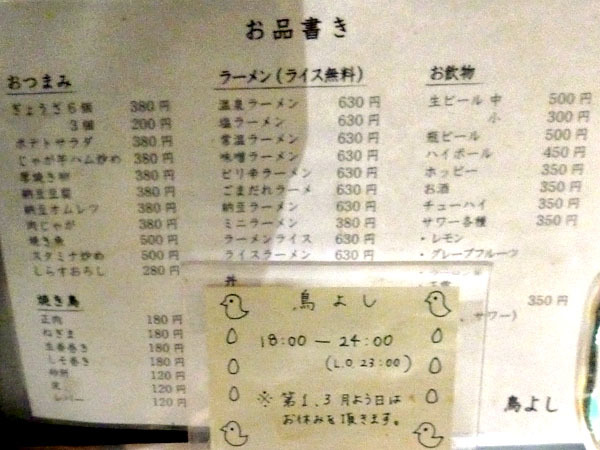 お品書き
おつまみ
ぎょうざ6個 380円
3個 200円
ポテトサラダ 380円
じゃが芋ハム炒め 380円
厚焼き卵 380円
納豆豆腐 380円
納豆オムレツ 380円
肉じゃが 380円
焼き魚 500円
スタミナ炒め 500円
しらすおろし 280円
焼き鳥
正肉 180円
ねぎま 180円
生姜巻き 180円
しそ巻き 180円
120円
120円
レバー 120円
ラーメン(ライス無料)
温泉ラーメン 630円
塩ラーメン 630円
常温ラーメン 630円
味噌ラーメン 630円
ピリ辛ラーメン 630円
ごまだれラーメ 630円
納豆ラーメン 630円
ミニラーメン 380円
ラーメンライス 630円
ライスラーメン 630円
丼
お飲物
生ビール 中 500円
小 300円
瓶ビール 500円
ハイボール 450円
ホッピー 350円
お酒 350円
チューハイ 350円
サワー各種 350円
・レモン
・グレープフルーツ
350円
サワー)
鳥よし
鳥よし
18:00 — 24:00
(L.O.23:00)
※ 第1.3月よう日は
お休みを頂きます。